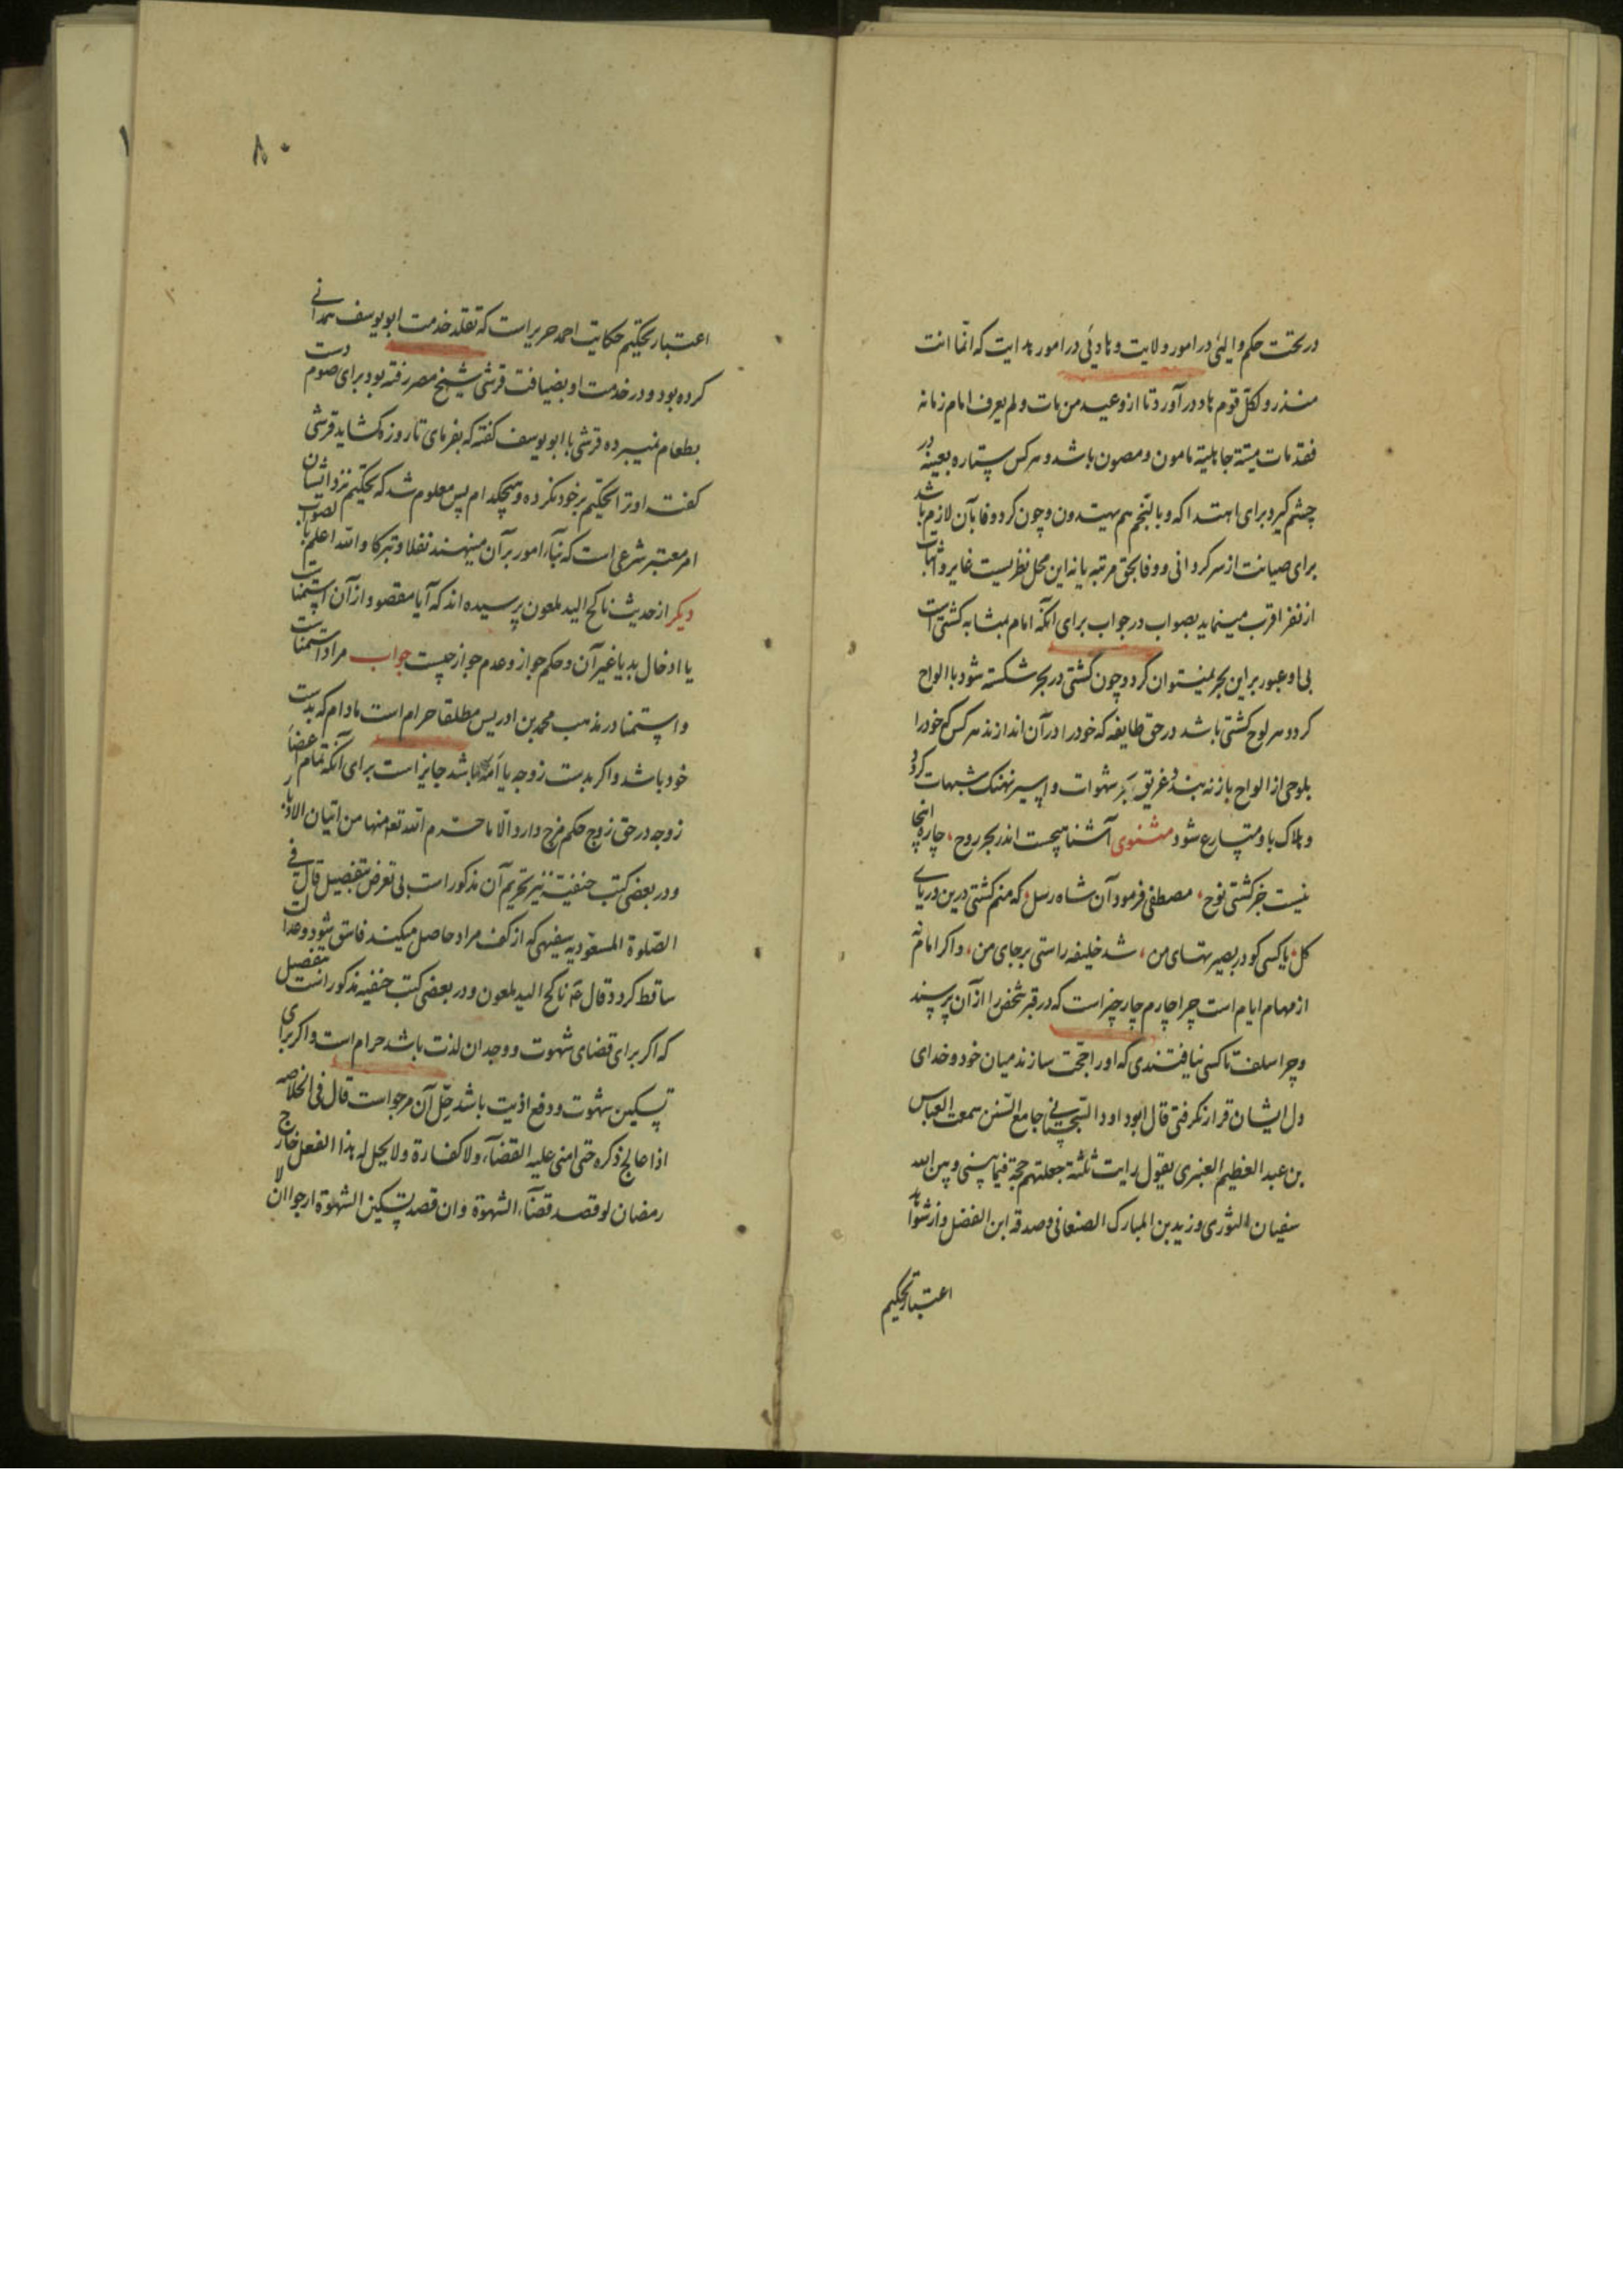 در تحت حکم والیئی در امور ولایت و هادیئی در امور هدایت که انّما انت
منذر و لکلّ قوم هاد در آورد تا از وعید من مات و لم یعرف امام زمانه
فقد مات میتة جاهلیة مامون و مصون باشد و هر کس ستاره بعینه در
چشم گیرد برای اهتدا که و بالنّجم هم یهتدون و چون کرد وفا بآن لازم باشد
برای صیانت از سرگردانی و وفا بحق مرتبه یا نه این محل نظریست غایر و اثبات
از نفی اقرب مینماید بصواب در جواب برای آنکه امام بمثابه کشتی است
بی او عبور بر این بحر نمیتوان کرد و چون کشتی در بحر شکسته شود با الواح
گردد هر لوح کشتی باشد در حق طایفه که خود را در آن اندازند هر کس که خود را
بلوحی از الواح باز نه بندد غریق بحر شهوات و اسیر نهنک شبهات گردد
و هلاک باو متسارع شود مثنوی آشنا هیچست اندر بحر روح، چاره اینجا
نیست جز کشتی نوح، مصطفی فرمود آن شاه رسل، که منم کشتی درین دریای
کل، یا کسی کو در بصیرتهای من، شد خلیفه راستی بر جای من، و اگر امام نه
از مهام ایام است چرا چارم چار چیز است که در قبر شخص را از آن پرسند
و چرا سلف تا کسی نیافتندی که او را حجت سازند میان خود و خدای
دل ایشان قرار نگرفتی قال ابو داود السجستانی فی جامع السنن سمعت العباس
بن عبد العظیم العنبری یقول رایت ثلثة جعلتهم حجة فیما بینی و بین الله
سفیان الثوری و زید بن المبارک الصنعانی و صدقه ابن الفضل و از شواهد
اعتبار تحکیم
۸۰
اعتبار تحکیم حکایت احمد حریر است که تقلد خدمت ابو یوسف همدانی
کرده بود و در خدمت او بضیافت قرشی شیخ مصر رفته بود برای صوم دست
بطعام نمیبرده قرشی با ابو یوسف گفته که بفرمای تا روزه گشاید قرشی
گفت او ترا تحکیم بر خود نکرده و هیچکدام پس معلوم شد که تحکیم نزد ایشان
امر معتبر شرعی است که بنآء امور بر آن مینهند نفلا و تبرکا و الله اعلم بالصواب
دیگر از حدیث ناکح الید ملعون پرسیده اند که آیا مقصود از آن استمناست
یا ادخال ید یا غیر آن و حکم جواز و عدم جواز چیست جواب مراد استمناست
و استمنا در مذهب محمد بن ادریس مطلقا حرام است مادام که بدست
خود باشد و اگر بدست زوجه یا اَمَه باشد جایز است برای آنکه تمام اعضآء
زوجه در حق زوج حکم فرج دارد الّا ما حرّم الله تع منها من اتیان الادبار
و در بعضی کتب حنفیّه نیز تحریم آن مذکور است بی تعرض تفصیل قال فی
الصّلوة المسعودیه سفیهی که از کف مراد حاصل میکند فاسق شود و عدالت
ساقط گردد قال عم ناکح الید ملعون و در بعضی کتب حنفیه مذکور است تفصیل
که اگر برای قضای شهوت و وجدان لذت باشد حرام است و اگر برای
تسکین شهوت و دفع اذیت باشد حِلّ آن مرجواست قال فی الخلاصه
اذا عالج ذکره حتی امنی علیه القضآء و لا کفارة و لا یحل له هذا الفعل خارج
رمضان لو قصد قضآء الشهوة و ان قصد تسکین الشهوة ارجو ان لا